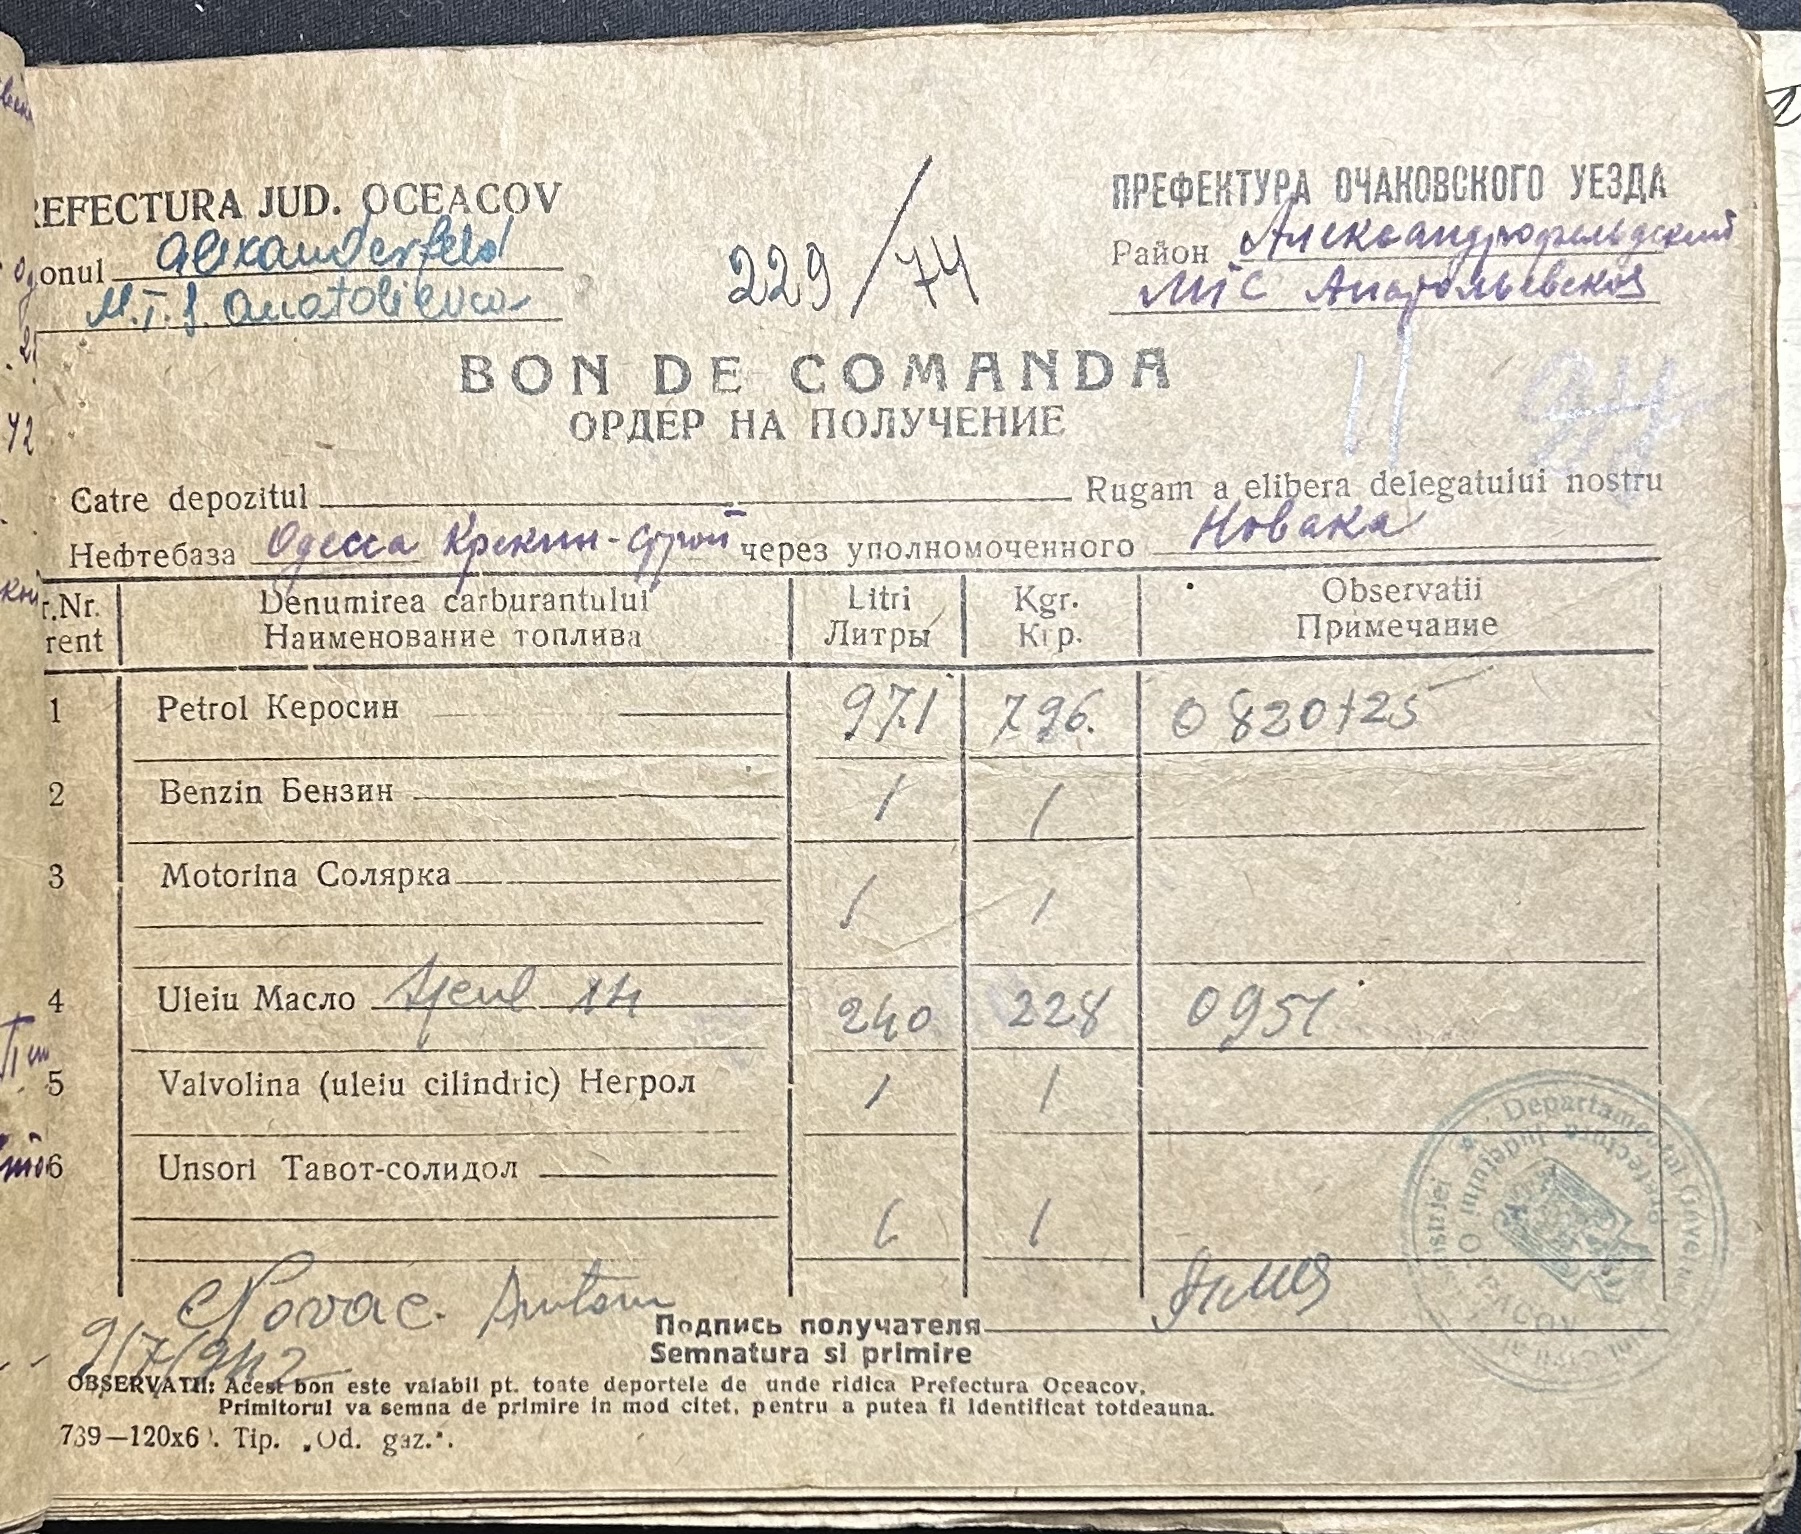 REFECTURA JUD. OCEACOV
onul Alexanderfeld
M.T.S. Anatolievca
229/74
ПРЕФЕКТУРА ОЧАКОВСКОГО УЕЗДА
Район Александрофельдский
МТС Анатольевская
BON DE COMANDA
ОРДЕР НА ПОЛУЧЕНИЕ
Catre depozitul Rugam a elibera delegatului nostru
Нефтебаза Одесса Крекин-Строй через уполномоченного Новака
r.Nr. Denumirea carburantului Litri Kgr. Observatii
rent Наименование топлива Литры Кгр. Примечание
1 Petrol Керосин 971 796. 0820+25
2 Benzin Бензин / /
3 Motorina Солярка / /
4 Uleiu Масло 240 228 0951
5 Valvolina (uleiu cilindric) Негрол / /
6 Unsori Тавот-солидол / /
Novac. Anton
Подпись получателя
Semnatura si primire
9/7/942
OBSERVATII: Acest bon este valabil pt. toate deportele de unde ridica Prefectura Oceacov.
Primitorul va semna de primire in mod citet, pentru a putea fi identificat totdeauna.
739—120x6 . Tip. „Od. gaz.".